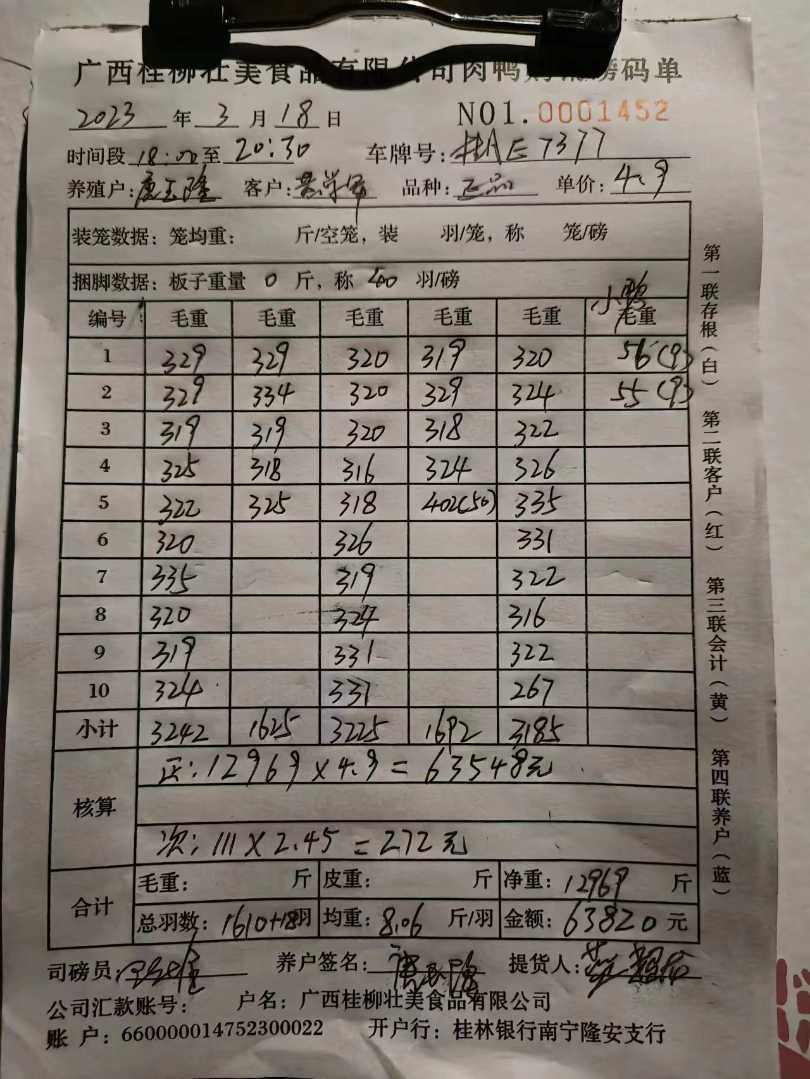 广西桂柳壮美食品有限公司肉鸭 磅码单
2023 年 3 月 18 日 NO1.0001452
时间段 18:00 至 20:30 车牌号: 桂AE7377
养殖户: 客户: 品种: 正品 单价: 4.9
装笼数据: 笼均重: 斤/空笼, 装 羽/笼, 称 笼/磅
捆脚数据: 板子重量 0 斤, 称 40 羽/磅
小鸭
编号 毛重 毛重 毛重 毛重 毛重 毛重
1 329 329 320 319 320 56(9)
2 329 334 320 329 324 55(9)
3 319 319 320 318 322
4 325 318 316 324 326
5 322 325 318 402(50) 335
6 320 326 331
7 335 319 322
8 320 324 316
9 319 331 322
10 324 331 267
小计 3242 1625 3225 1692 3185
核算
正: 12969×4.9=63548元
次: 111×2.45=272元
合计
毛重: 斤 皮重: 斤 净重: 12969 斤
总羽数: 1610+18羽 均重: 8.06 斤/羽 金额: 63820 元
司磅员: 养户签名: 提货人:
公司汇款账号: 户名: 广西桂柳壮美食品有限公司
账 户: 660000014752300022 开户行: 桂林银行南宁隆安支行
第一联存根(白) 第二联客户(红) 第三联会计(黄) 第四联养户(蓝)